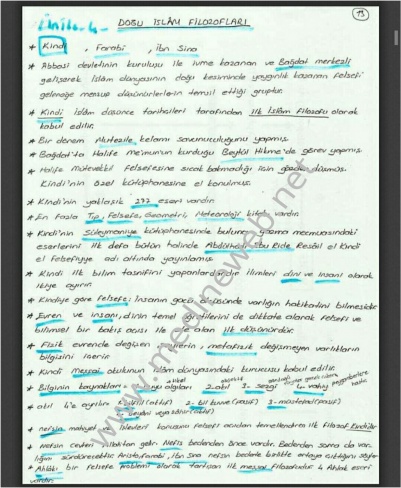 Ünite 4
DOĞU İSLÂM FİLOZOFLARI
13
* Kindi, Farabi, İbn Sina
* Abbasi devletinin kuruluşu ile ivme kazanan ve Bağdat merkezli
gelişerek İslâm dünyasının doğu kesiminde yaygınlık kazanan felsefi
geleneğe mensup düşünürlerin temsil ettiği gruptur.
* Kindi İslâm düşünce tarihçileri tarafından ilk İslâm Filozofu olarak
kabul edilir.
* Bir dönem Mutezile kelamı savunuculuğunu yapmış.
* Bağdat'ta Halife Me'mun'un kurduğu Beytül Hikme'de görev yapmış.
* Halife Mütevekkil Felsefesine sıcak bakmadığı için gözden düşmüş.
Kindi'nin özel kütüphanesine el konulmuş.
* Kindi'nin yaklaşık 277 eseri vardır
* En fazla Tıp, Felsefe, Geometri, Meteoroloji kitabı vardır.
* Kindi'nin Süleymaniye kütüphanesinde bulunan yazma mecmuasındaki
eserlerini ilk defa bütün halinde Abdülhadi Ebu Ride Resâil el Kindi
el Felsefiyye adı altında yayınlamış.
* Kindi ilk bilim tasnifini yapanlardandır ilimleri dini ve insani olarak
ikiye ayırır.
* Kindiye göre felsefe; İnsanın gücü ölçüsünde varlığın hakikatini bilmesidir
* Evren ve insanı, dinin temel öğretilerini de dikkate alarak felsefi ve
bilimsel bir bakış açısı ile ele alan ilk düşünürdür.
* Fizik evrende değişen şeylerin, metafizik değişmeyen varlıkların
bilgisini inerir.
* Kindi Meşşai okulunun İslâm dünyasındaki kurucusu kabul edilir.
* Bilginin kaynakları: duyu algıları 2. akıl 3. sezgi 4. vahiy peygamberlere
* akıl 4'e ayrılır: 2. bil kuvve (pasif) 3. müstefad (pasif)
* nefsin mahiyet ve işlevleri konusunu felsefi açıdan temellendiren ilk filozof Kindi'dir
* Nefsin cevheri ilahtan gelir. Nefis bedenden önce vardır. Bedenden sonra da var-
lığını sürdürecektir. Aristo, Farabi, İbn Sina nefsin bedenle birlikte ortaya çıktığını söyler
* Ahlâkı bir felsefe problemi olarak tartışan ilk meşşai filozofudur. 4 Ahlak eseri
vardır.
www.medineweb.net